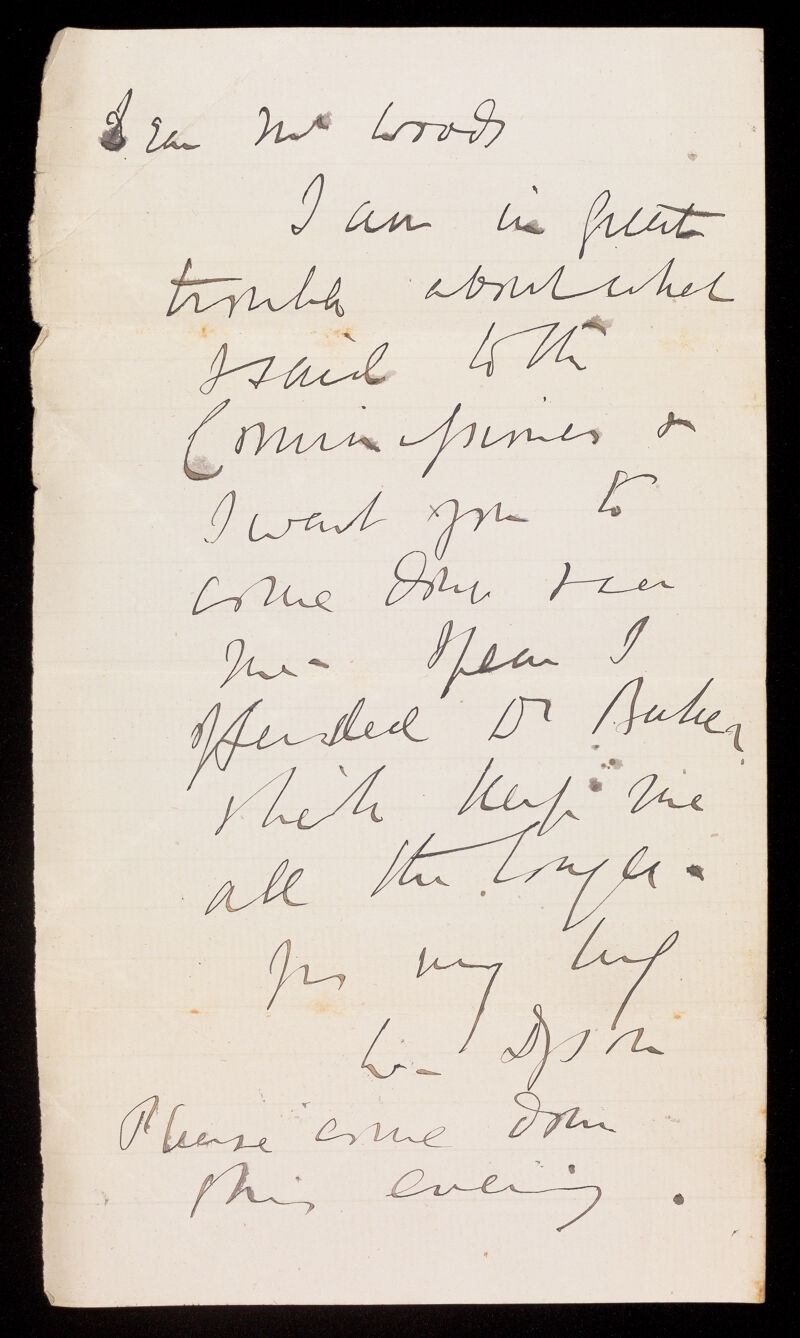 Dear Mr Woods
I am in great
trouble about what
I said to the
Commissioner &
I want you to
come down & see
me - I fear I
offended Dr Baker
& he'll keep me
all the longer.
yrs very truly
W- Dyson
Please come down
this evening.